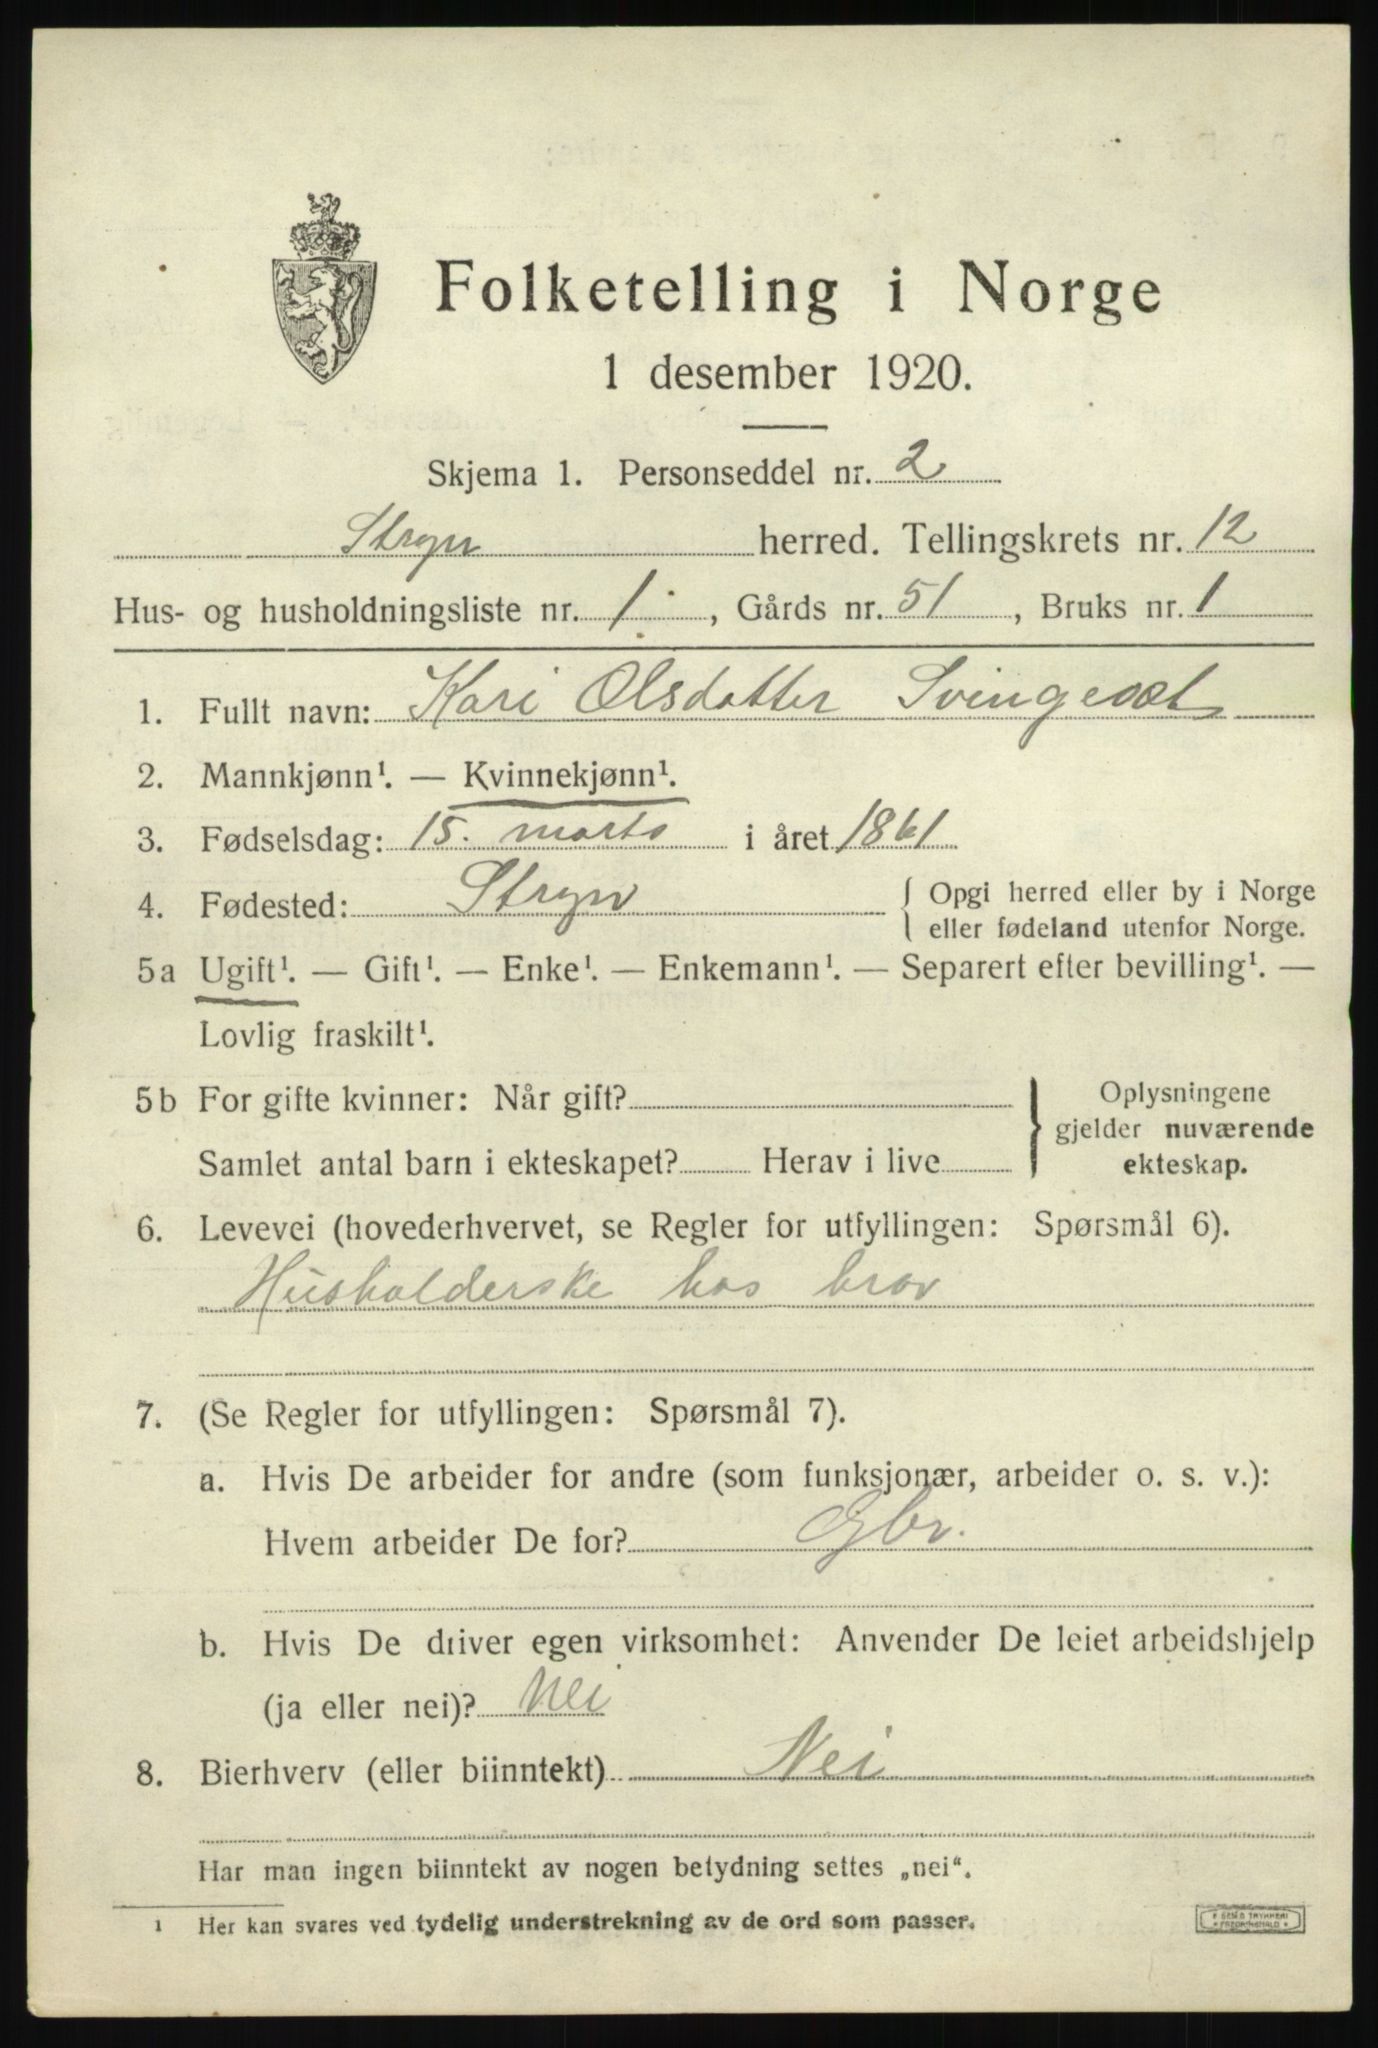 Folketelling i Norge
1 desember 1920.
Skjema 1. Personseddel nr. 2
Stryn herred. Tellingskrets nr. 12
Hus- og husholdningsliste nr. 1, Gårds nr. 51, Bruks nr. 1
1. Fullt navn: Kari Olsdatter
2. Mannkjønn¹. — Kvinnekjønn¹.
3. Fødselsdag: 15. marts i året 1861
4. Fødested: Stryn { Opgi herred eller by i Norge
eller fødeland utenfor Norge.
5a Ugift¹. — Gift¹. — Enke¹. — Enkemann¹. — Separert efter bevilling¹. —
Lovlig fraskilt¹.
5b For gifte kvinner: Når gift?
Samlet antal barn i ekteskapet? Herav i live
} Oplysningene
gjelder nuværende
ekteskap.
6. Levevei (hovederhvervet, se Regler for utfyllingen: Spørsmål 6).
Husholderske hos bror
7. (Se Regler for utfyllingen: Spørsmål 7).
a. Hvis De arbeider for andre (som funksjonær, arbeider o. s. v.):
Hvem arbeider De for? Gbr.
b. Hvis De driver egen virksomhet: Anvender De leiet arbeidshjelp
(ja eller nei)? Nei
8. Bierhverv (eller biinntekt) Nei
Har man ingen biinntekt av nogen betydning settes „nei“.
¹ Her kan svares ved tydelig understrekning av de ord som passer.